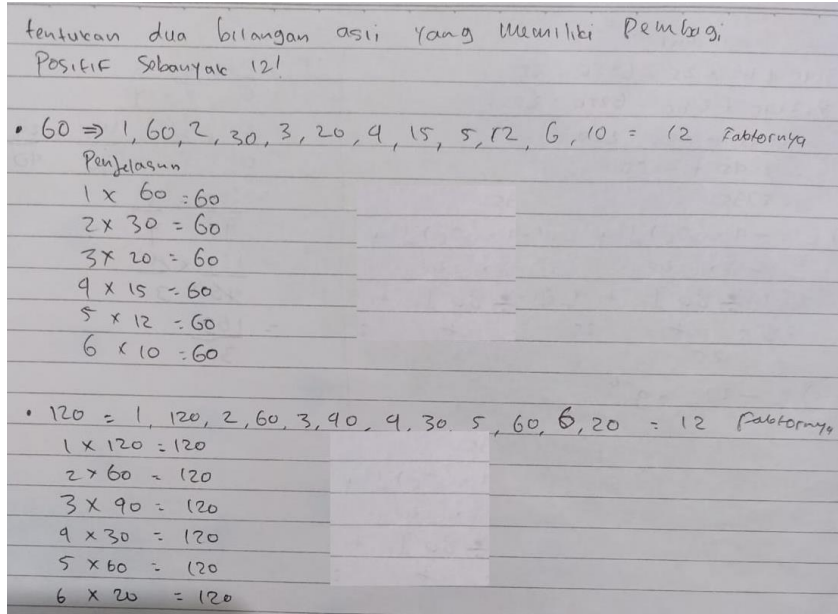 tentukan dua bilangan asli yang memiliki Pembagi
Positif Sebanyak 12!
• 60 ⇒ 1, 60, 2, 30, 3, 20, 4, 15, 5, 12, 6, 10 = 12 Faktornya
Penjelasan
1 x 60 = 60
2 x 30 = 60
3 x 20 = 60
4 x 15 = 60
5 x 12 = 60
6 x 10 = 60
• 120 = 1, 120, 2, 60, 3, 40, 4, 30, 5, 60, 6, 20 = 12 Faktornya
1 x 120 = 120
2 x 60 = 120
3 x 40 = 120
4 x 30 = 120
5 x 60 = 120
6 x 20 = 120